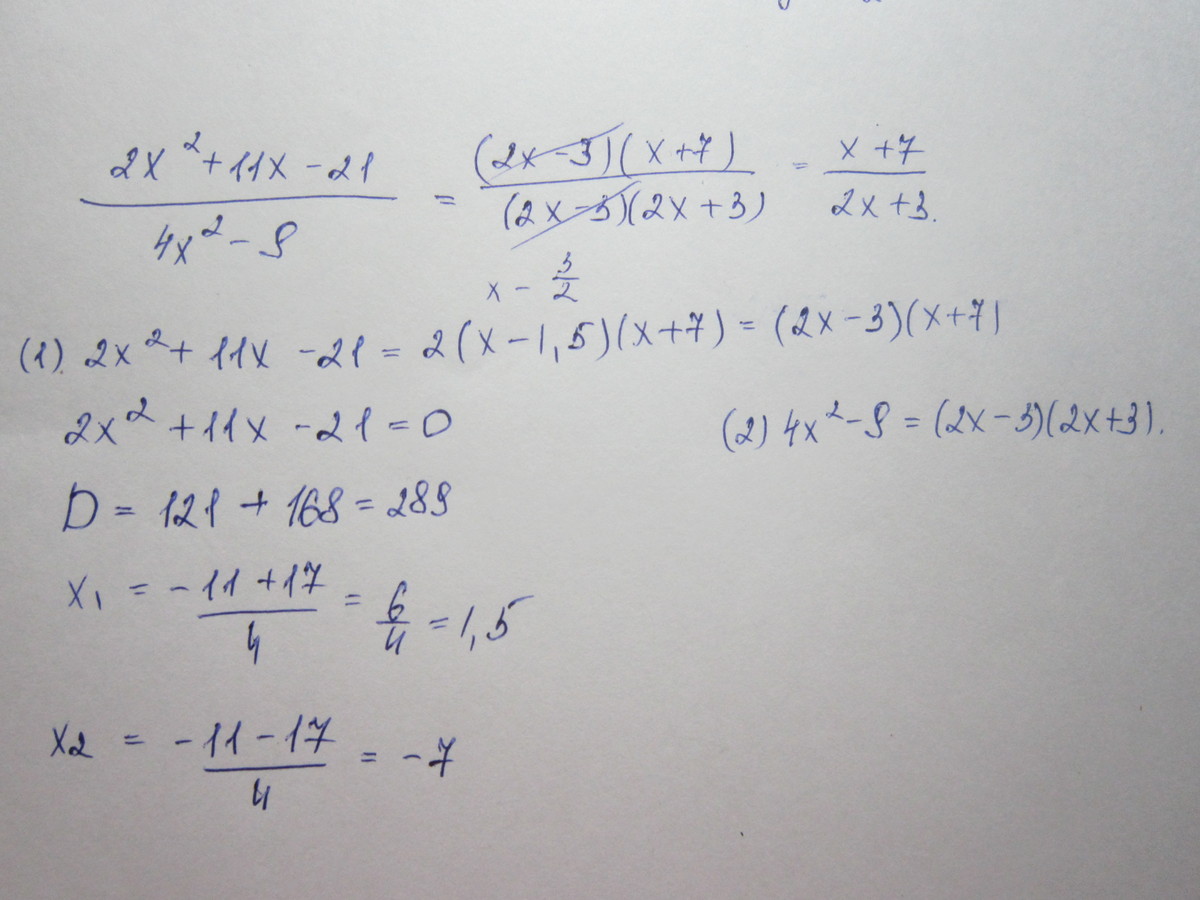 (2x² + 11x - 21)/(4x² - 9) = ((2x - 3)(x + 7))/((2x - 3)(2x + 3)) = (x + 7)/(2x + 3).
x - 3/2
(1). 2x² + 11x - 21 = 2(x - 1,5)(x + 7) = (2x - 3)(x + 7)
2x² + 11x - 21 = 0
(2) 4x² - 9 = (2x - 3)(2x + 3).
D = 121 + 168 = 289
x₁ = (-11 + 17)/4 = 6/4 = 1,5
x₂ = (-11 - 17)/4 = -7